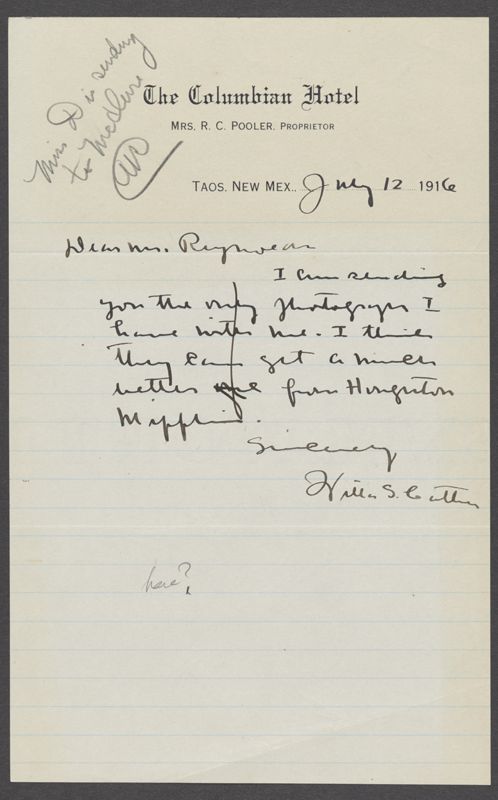 Miss D is sending
to McClure
The Columbian Hotel
MRS. R. C. POOLER, PROPRIETOR
TAOS, NEW MEX., July 12 1916
Dear Mr. Reynolds
I am sending
you the only photograph I
have with me. I think
they can get a much
better one from Houghton
Mifflin.
Sincerely
Willa S. Cather
here?